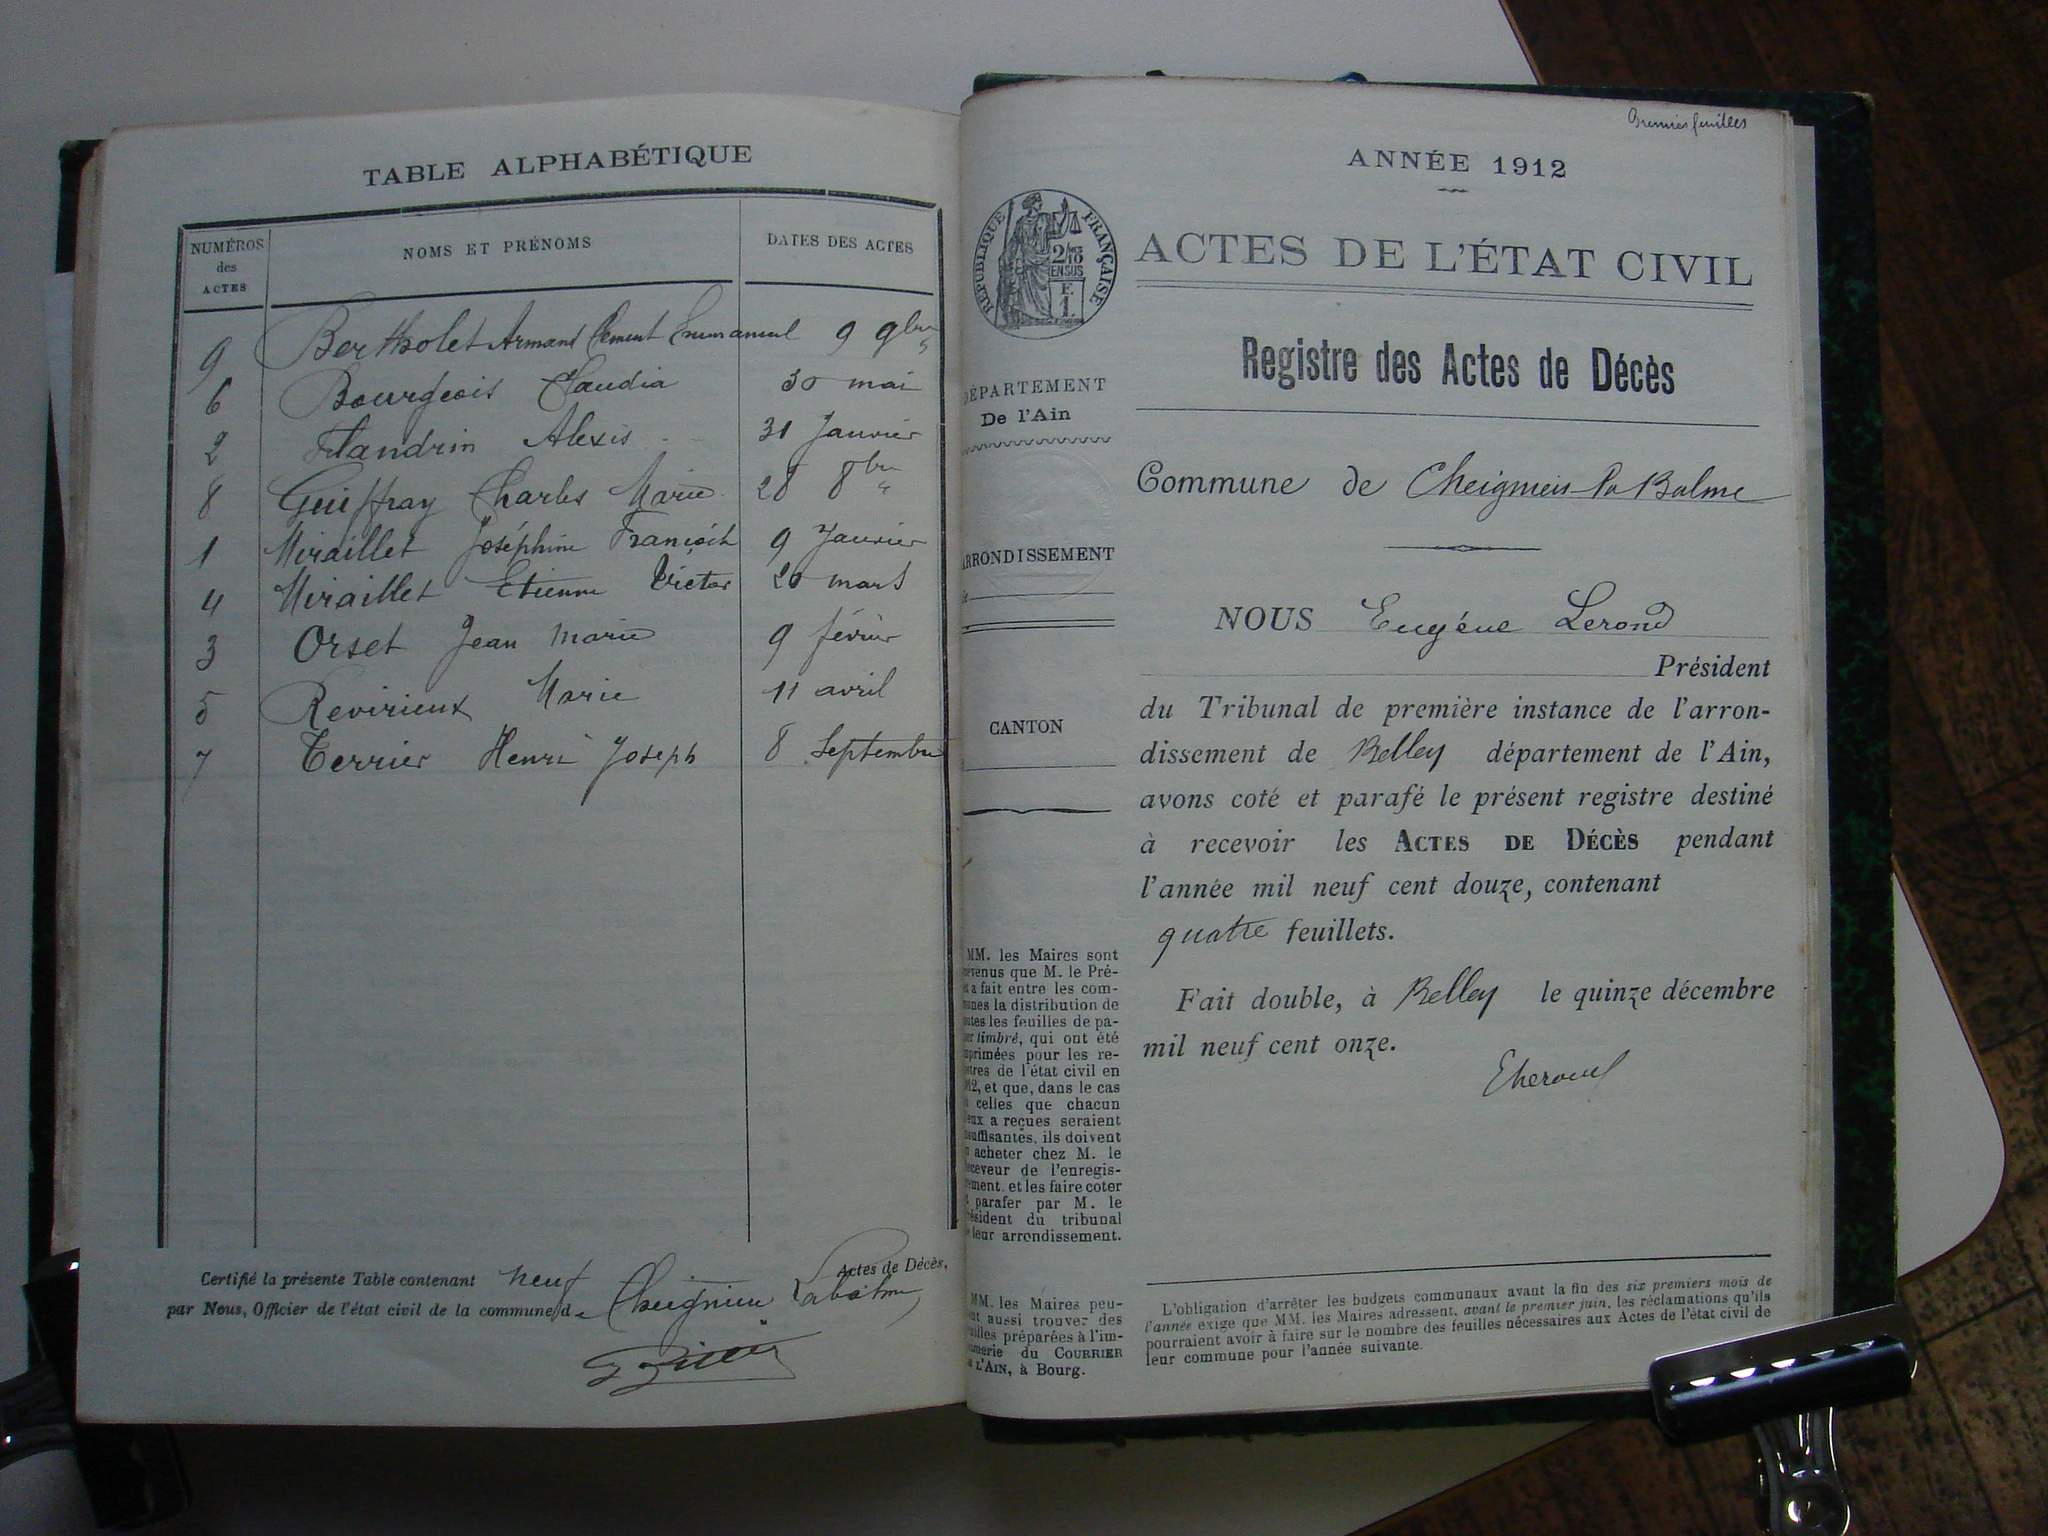 TABLE ALPHABÉTIQUE
NUMÉROS des ACTES NOMS ET PRÉNOMS DATES DES ACTES
9 Bertholet Armand Clement Emmanuel 9 9bre
6 Bourgeois Claudia 30 mai
2 Flandrin Alexis 31 Janvier
8 Guiffray Charles Marie 28 8bre
1 Miraillet Joséphine 9 Janvier
4 Miraillet Etienne Victor 20 mars
3 Orset Jean Marie 9 février
5 Revirieux Marie 11 avril
7 Terrier Henri Joseph 8 Septembre
Certifié la présente Table contenant neuf Actes de Décès,
par Nous, Officier de l'état civil de la commune d
Premier feuillet
ANNÉE 1912
RÉPUBLIQUE FRANÇAISE
ACTES DE L'ÉTAT CIVIL
Registre des Actes de Décès
DÉPARTEMENT
De l'Ain
Commune de Cheignieu La Balme
ARRONDISSEMENT
NOUS Eugéne Lerond
Président
du Tribunal de première instance de l'arron-
dissement de Belley département de l'Ain,
avons coté et parafé le présent registre destiné
à recevoir les ACTES DE DÉCÈS pendant
l'année mil neuf cent douze, contenant
quatre feuillets.
Fait double, à Belley le quinze décembre
mil neuf cent onze.
CANTON
MM. les Maires sont
venus que M. le Pré-
a fait entre les com-
munes la distribution de
toutes les feuilles de pa-
timbré, qui ont été
primées pour les re-
tres de l'état civil en
12, et que, dans le cas
celles que chacun
eux a reçues seraient
suffisantes, ils doivent
acheter chez M. le
receveur de l'enregis-
rement, et les faire coter
parafer par M. le
résident du tribunal
leur arrondissement.
MM. les Maires peu-
aussi trouver des
uilles préparées à l'im-
merie du COURRIER
L'AIN, à Bourg.
L'obligation d'arrêter les budgets communaux avant la fin des six premiers mois de
l'année exige que MM. les Maires adressent, avant le premier juin, les réclamations qu'ils
pourraient avoir à faire sur le nombre des feuilles nécessaires aux Actes de l'état civil de
leur commune pour l'année suivante.